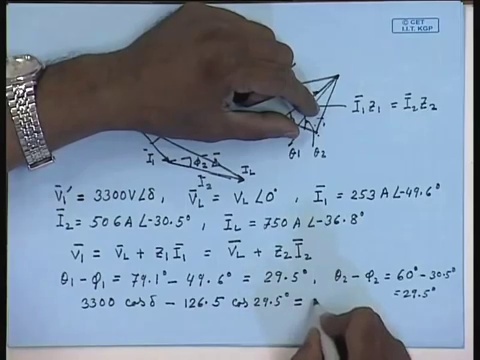 © CET
I.I.T. KGP
Ī₁Z₁ = Ī₂Z₂
θ₁ θ₂
Ī₁ φ₂
Ī₂ I_L
V̄₁' = 3300V∠δ , V̄_L = V_L∠0° , Ī₁ = 253 A∠-49.6°
Ī₂ = 506 A∠-30.5° , Ī_L = 750 A∠-36.8°
V̄₁ = V̄_L + Z₁Ī₁ = V̄_L + Z₂Ī₂
θ₁-φ₁ = 79.1° - 49.6° = 29.5° , θ₂-φ₂ = 60° - 30.5°
= 29.5°
3300 cosδ - 126.5 cos 29.5° =